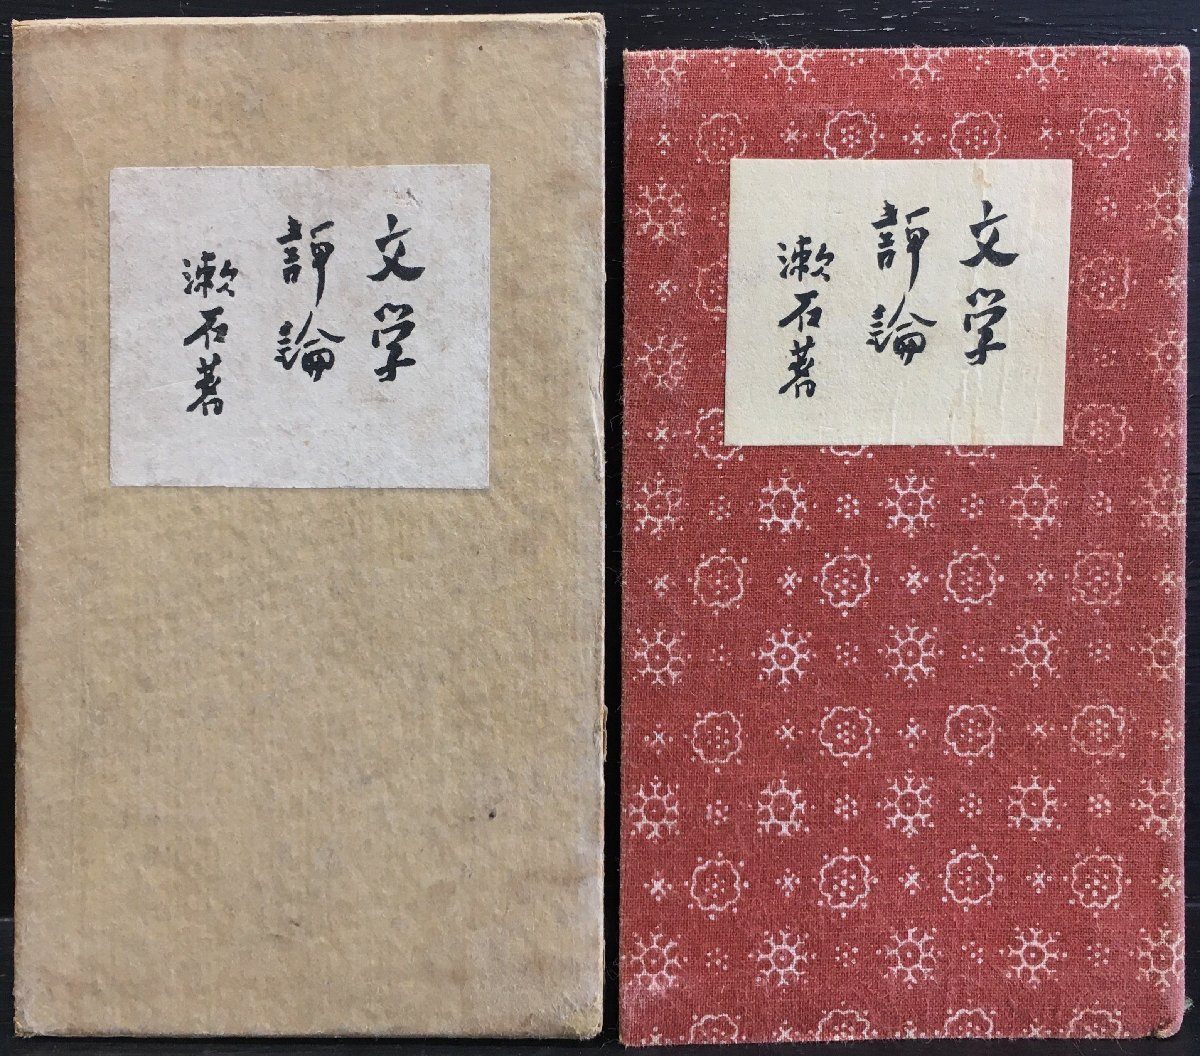 文学
評論
漱石著
文学
評論
漱石著